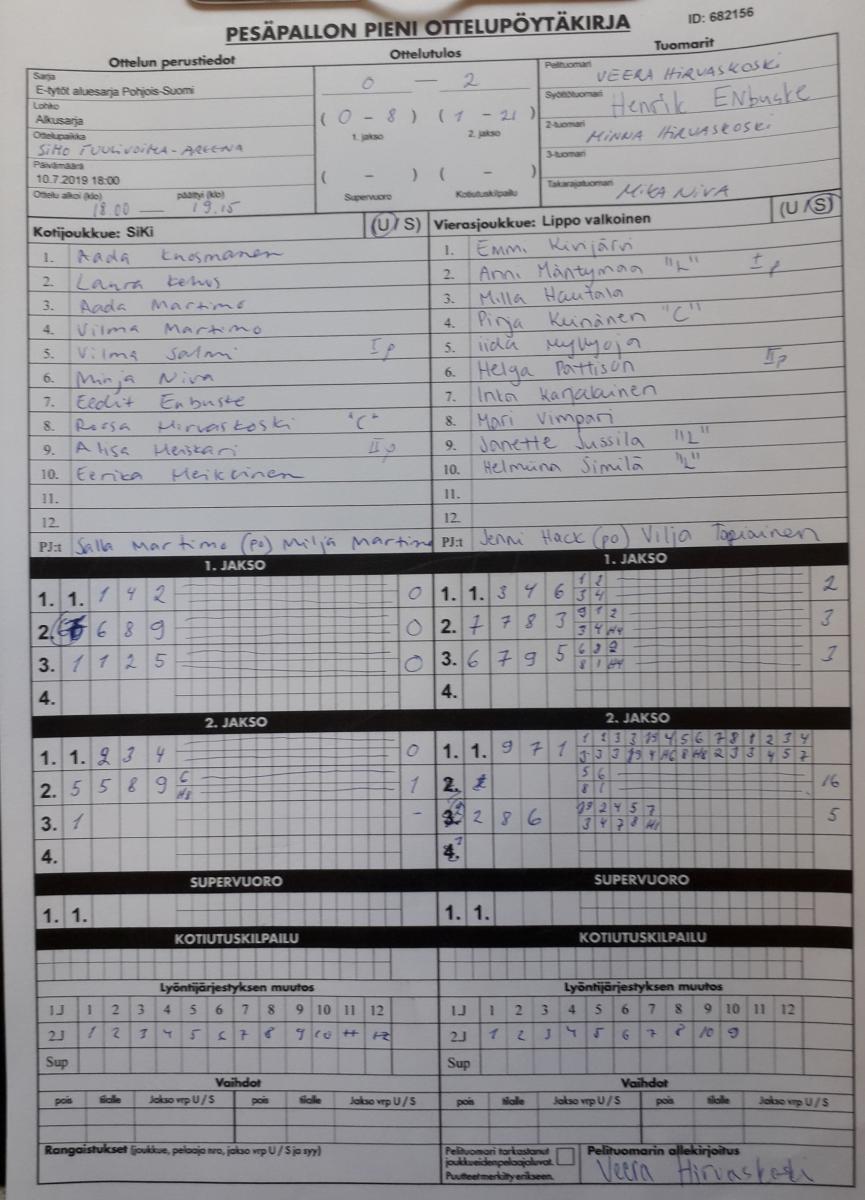 PESÄPALLON PIENI OTTELUPÖYTÄKIRJA
ID: 682156
Ottelun perustiedot
Sarja
E-tytöt aluesarja Pohjois-Suomi
Lohko
Alkusarja
Ottelupaikka
SIMO TUULIVOIMA-AREENA
Päivämäärä
10.7.2019 18:00
Ottelu alkoi (klo) päättyi (klo)
18.00 — 19.15
Ottelutulos
0 — 2
(0 - 8) (1 - 21)
1. jakso 2. jakso
( - ) ( - )
Supervuoro Kotiutuskilpailu
Tuomarit
Pelituomari VEERA HIRVASKOSKI
Syöttötuomari Henrik ENbuske
2-tuomari MINNA HIRVASKOSKI
3-tuomari
Takarajatuomari MIKA NIVA
Kotijoukkue: SiKi (U / S)
1. Aada Knosmanen
2. Laura Kehus
3. Aada Martimo
4. Vilma Martimo
5. Vilma Salmi I p
6. Minja Niva
7. Eedit Enbuske
8. Roosa Hirvaskoski "C"
9. Alisa Heiskari II p
10. Eerika Heikkinen
11.
12.
PJ:t Salla Martimo (po) Milja Martimo
Vierasjoukkue: Lippo valkoinen (U / S)
1. Emmi Kinjärvi
2. Anni Mäntymaa "L" I p
3. Milla Hautala
4. Pinja Keinänen "C"
5. iida Myllyoja
6. Helga Pattison II p
7. Inka Karjalainen
8. Mari Vimpari
9. Janette Jussila "L"
10. Helmiina Similä "L"
11.
12.
PJ:t Jenni Hack (po) Vilja Tapiainen
1. JAKSO
1. 1. 1 4 2 0
2. 6 8 9 0
3. 1 1 2 5 0
4.
1. JAKSO
1. 1. 3 4 6 1 2 2
3 4
2. 7 7 8 3 9 1 2 3
3 4 H4
3. 6 7 9 5 6 8 2 3
8 1 H4
4.
2. JAKSO
1. 1. 2 3 4 0
2. 5 5 8 9 6 1
H8
3. 1 -
4.
2. JAKSO
1. 1. 9 7 1
2. 16
5 6
8 1
3. 2 8 6 5
4.
SUPERVUORO
1. 1.
SUPERVUORO
1. 1.
KOTIUTUSKILPAILU
KOTIUTUSKILPAILU
Lyöntijärjestyksen muutos
1J 1 2 3 4 5 6 7 8 9 10 11 12
2J 1 2 3 4 5 6 7 8 9 10 11 12
Sup
Lyöntijärjestyksen muutos
1J 1 2 3 4 5 6 7 8 9 10 11 12
2J 1 2 3 4 5 6 7 8 10 9
Sup
Vaihdot
pois tilalle Jakso vrp U / S pois tilalle Jakso vrp U / S
Vaihdot
pois tilalle Jakso vrp U / S pois tilalle Jakso vrp U / S
Rangaistukset (joukkue, pelaaja nro, jakso vrp U / S ja syy)
Pelituomari tarkastanut
joukkueidenpelaajaluvat.
Puutteet merkitty erikseen.
Pelituomarin allekirjoitus
Veera Hirvaskoski